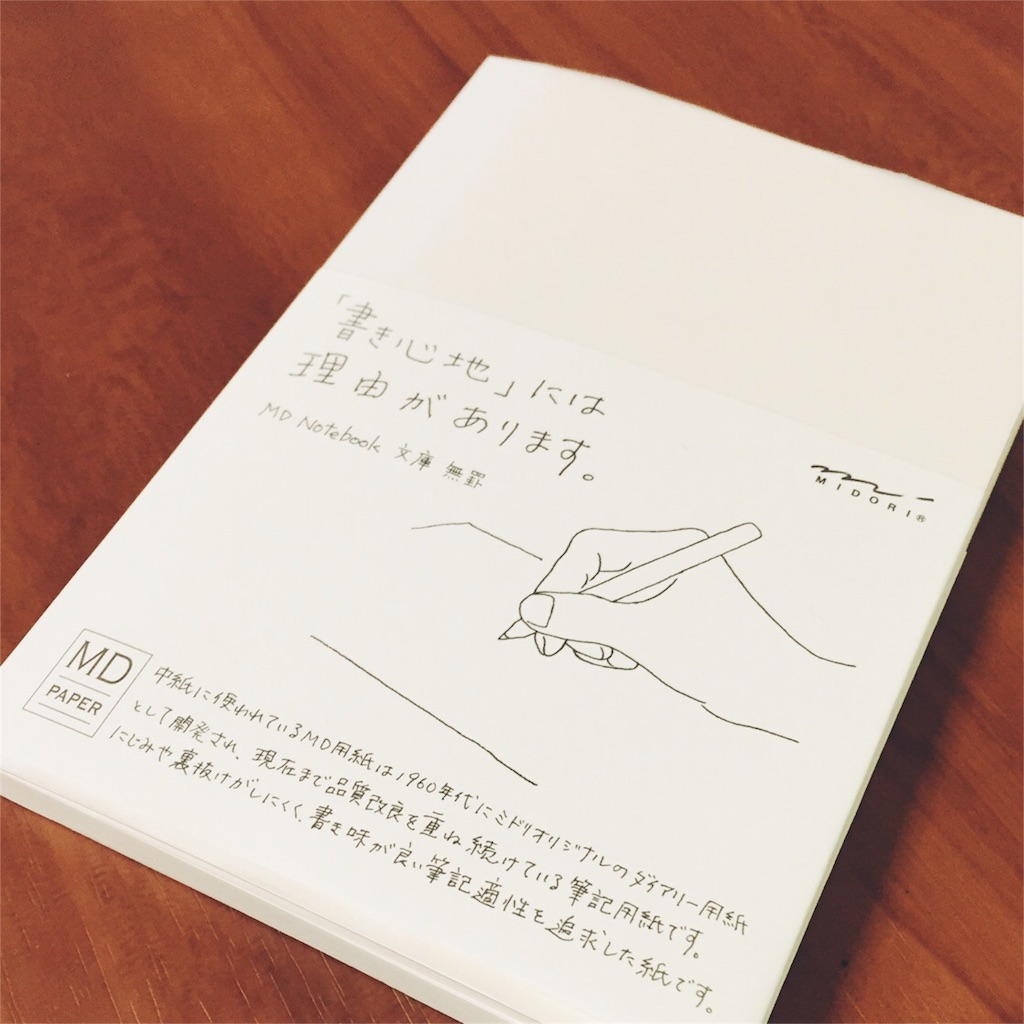 「書き心地」には
理由があります。
MD Notebook 文庫 無罫
MIDORI®
MD
PAPER
中紙に使われているMD用紙は1960年代にミドリオリジナルのダイアリー用紙
として開発され、現在まで品質改良を重ね続けている筆記用紙です。
にじみや裏抜けがしにくく、書き味が良い筆記適性を追求した紙です。